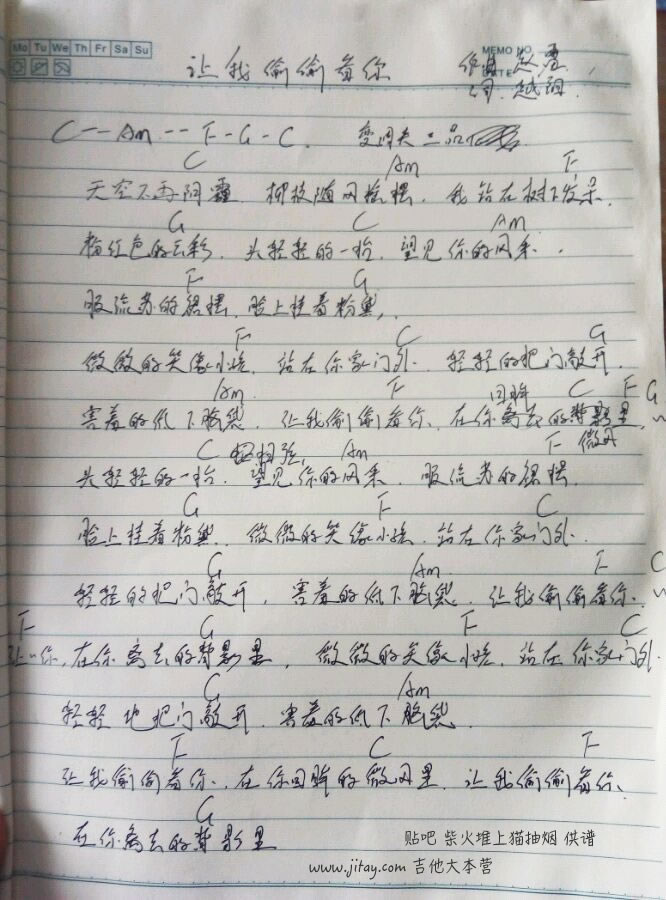 Mo Tu We Th Fr Sa Su
MEMO NO.
DATE
让我偷偷看你 作曲 赵雷
词 赵雷
C -- Am -- F - G - C. 变调夹二品
C Am F
天空不再阴霾 柳枝随风摇摆. 我站在树下发呆.
G C Am
粉红色的云彩. 头轻轻的一抬. 望见你的风采.
F G
服流苏的裙摆. 脸上挂着粉黛.
F C G
微微的笑像小孩. 站在你家门外. 轻轻的把门敲开.
Am F 回眸 C F G
害羞的低下脑袋. 让我偷偷看你. 在你离去的背影里. ~
C Am F 微风
头轻轻的一抬. 望见你的风采. 服流苏的裙摆.
G F C
脸上挂着粉黛. 微微的笑像小孩. 站在你家门外.
G Am F C
轻轻的把门敲开. 害羞的低下脑袋. 让我偷偷看你. ~
F G F C
让~你. 在你离去的背影里. 微微的笑像小孩. 站在你家门外.
G Am
轻轻地把门敲开. 害羞的低下脑袋.
F C F
让我偷偷看你. 在你回眸的微风里. 让我偷偷看你.
G
在你离去的背影里
贴吧 柴火堆上猫抽烟 供谱
www.jitay.com 吉他大本营